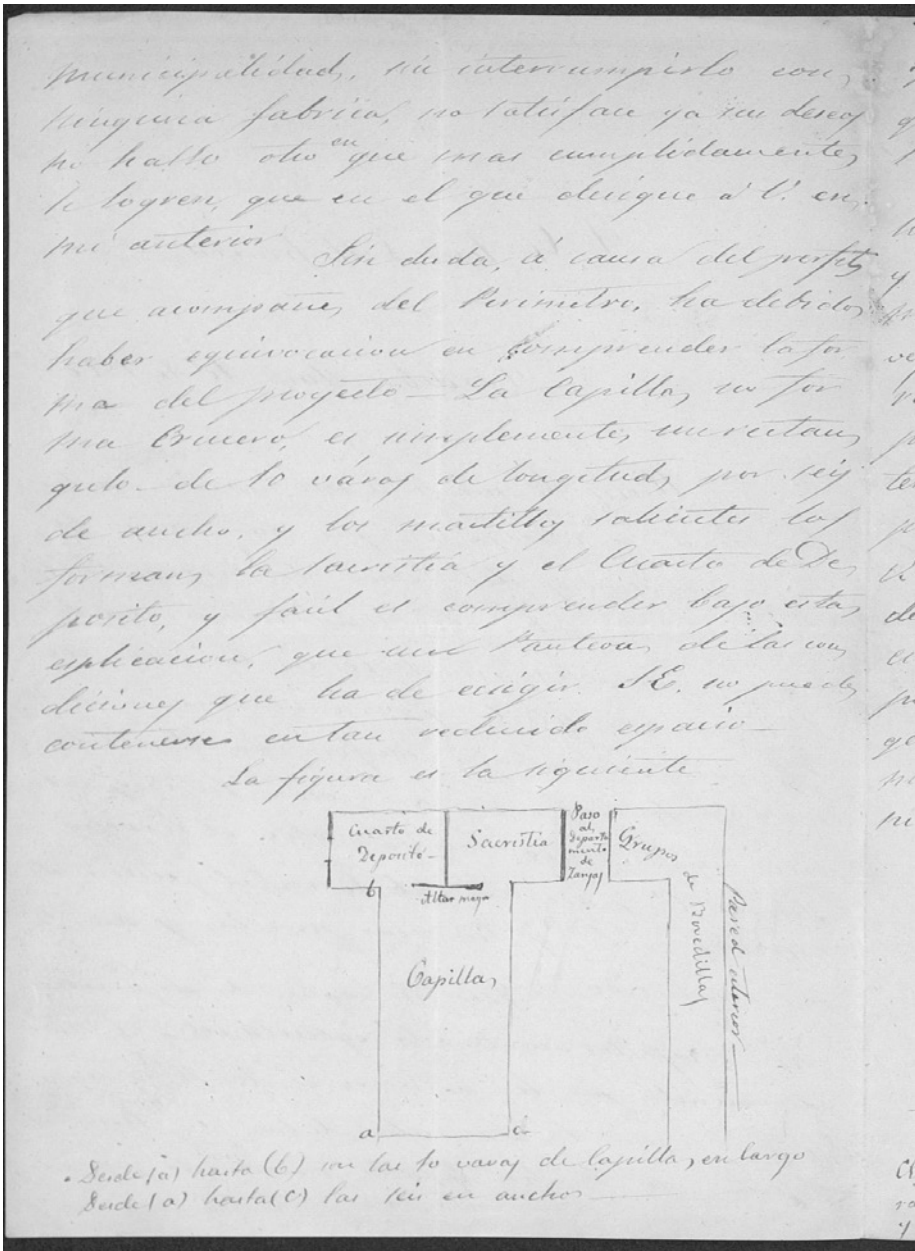 municipalidad, sin interrumpirlo con
ninguna fabrica, no satisface ya sus deseos
no hallo otro en que mas cumplidamente
se logren, que en el que designe á V. en
mi anterior
Sin duda, á causa del perfil
que acompañe, del Perimetro, ha debido
haber equivocacion en comprender la for
ma del proyecto — La Capilla, no for
ma Crucero, es simplemente, un rectan
gulo de 10 váras de longitud, por seis
de ancho, y los martillos salientes los
forman, la Sacristia y el Cuarto de De
posito, y fácil es comprender bajo esta
esplicacion, que un Panteon, de las con
diciones que ha de ecsigir S.E. no puede
contenerse en tan reducido espacio —
La figura es la siguiente
Cuarto de
Deposito —
Sacristia
Paso
al
Departa
mento
de
Zanjas
Grupos
de Bovedillas
Pared interior —
b
Altar mayor
Capilla
a
c
Desde (a) hasta (b) son las 10 varas de Capilla, en largo
Desde (a) hasta (c) las seis en ancho —